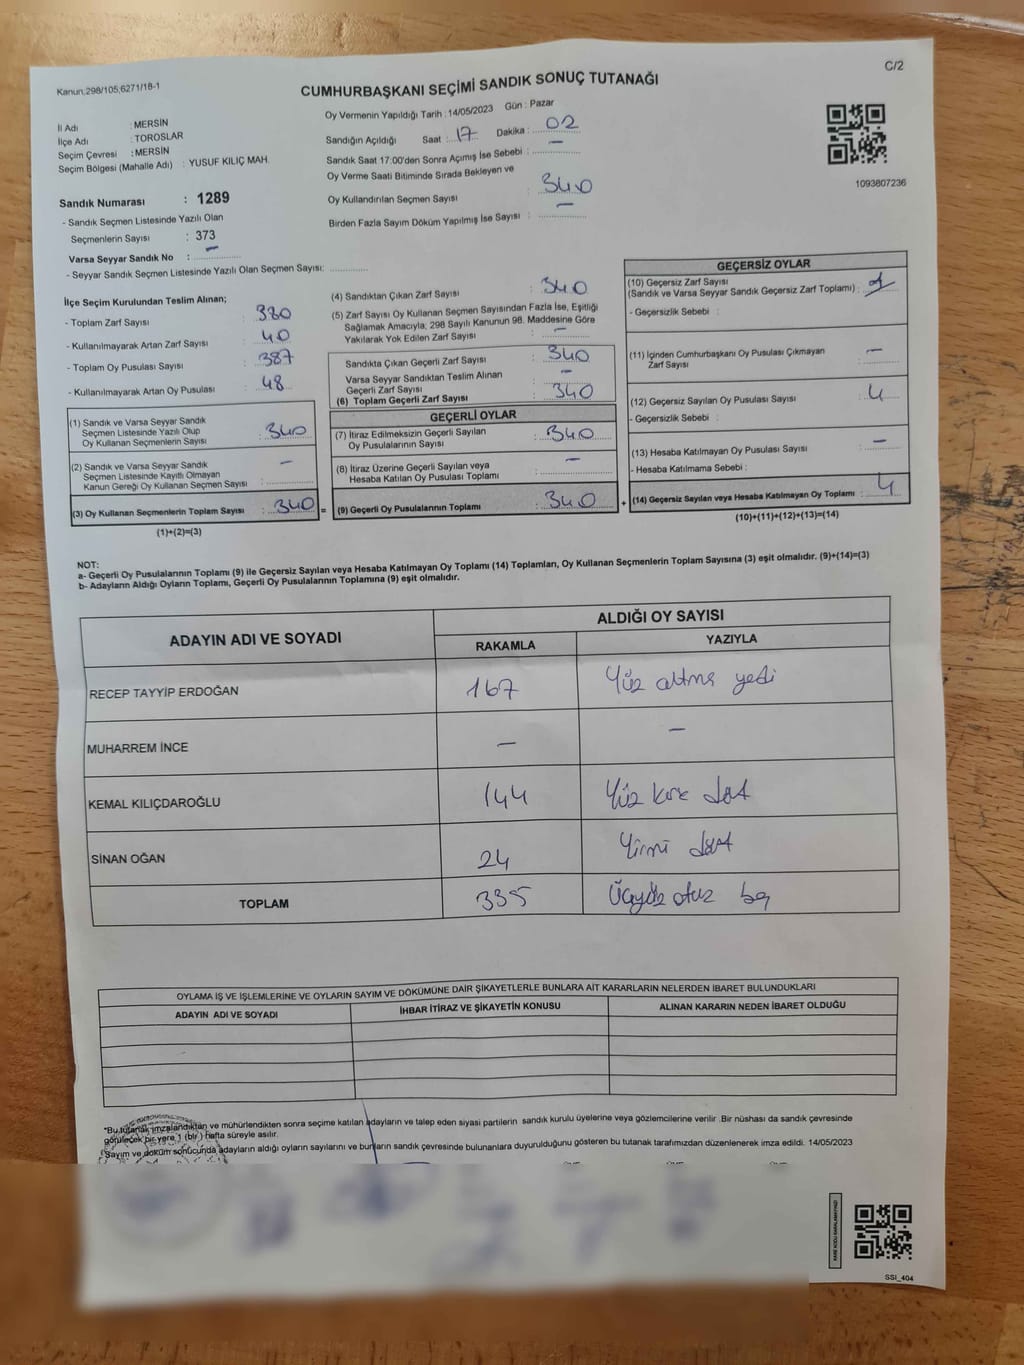 C/2
Kanun;298/105;6271/18-1
CUMHURBAŞKANI SEÇİMİ SANDIK SONUÇ TUTANAĞI
İl Adı : MERSİN
İlçe Adı : TOROSLAR
Seçim Çevresi : MERSİN
Seçim Bölgesi (Mahalle Adı) : YUSUF KILIÇ MAH.
Oy Vermenin Yapıldığı Tarih : 14/05/2023 Gün : Pazar
Sandığın Açıldığı Saat : 17 Dakika : 02
Sandık Saat 17:00'den Sonra Açımış İse Sebebi : —
Oy Verme Saati Bitiminde Sırada Bekleyen ve
Oy Kullandırılan Seçmen Sayısı : 340
Birden Fazla Sayım Döküm Yapılmış İse Sayısı : —
1093807236
Sandık Numarası : 1289
- Sandık Seçmen Listesinde Yazılı Olan
Seçmenlerin Sayısı : 373
Varsa Seyyar Sandık No : —
- Seyyar Sandık Seçmen Listesinde Yazılı Olan Seçmen Sayısı:
İlçe Seçim Kurulundan Teslim Alınan;
- Toplam Zarf Sayısı : 380
- Kullanılmayarak Artan Zarf Sayısı : 40
- Toplam Oy Pusulası Sayısı : 387
- Kullanılmayarak Artan Oy Pusulası : 48
(1) Sandık ve Varsa Seyyar Sandık
Seçmen Listesinde Yazılı Olup
Oy Kullanan Seçmenlerin Sayısı : 340
(2) Sandık ve Varsa Seyyar Sandık
Seçmen Listesinde Kayıtlı Olmayan
Kanun Gereği Oy Kullanan Seçmen Sayısı : —
(3) Oy Kullanan Seçmenlerin Toplam Sayısı : 340 =
(1)+(2)=(3)
(4) Sandıktan Çıkan Zarf Sayısı : 340
(5) Zarf Sayısı Oy Kullanan Seçmen Sayısından Fazla İse, Eşitliği
Sağlamak Amacıyla; 298 Sayılı Kanunun 98. Maddesine Göre
Yakılarak Yok Edilen Zarf Sayısı : —
Sandıkta Çıkan Geçerli Zarf Sayısı : 340
Varsa Seyyar Sandıktan Teslim Alınan
Geçerli Zarf Sayısı : —
(6) Toplam Geçerli Zarf Sayısı : 340
GEÇERLİ OYLAR
(7) İtiraz Edilmeksizin Geçerli Sayılan
Oy Pusulalarının Sayısı : 340
(8) İtiraz Üzerine Geçerli Sayılan veya
Hesaba Katılan Oy Pusulası Toplamı : —
(9) Geçerli Oy Pusulalarının Toplamı : 340 +
GEÇERSİZ OYLAR
(10) Geçersiz Zarf Sayısı
(Sandık ve Varsa Seyyar Sandık Geçersiz Zarf Toplamı) :
- Geçersizlik Sebebi :
(11) İçinden Cumhurbaşkanı Oy Pusulası Çıkmayan
Zarf Sayısı : —
(12) Geçersiz Sayılan Oy Pusulası Sayısı : 4
- Geçersizlik Sebebi :
(13) Hesaba Katılmayan Oy Pusulası Sayısı : —
- Hesaba Katılmama Sebebi :
(14) Geçersiz Sayılan veya Hesaba Katılmayan Oy Toplamı : 4
(10)+(11)+(12)+(13)=(14)
NOT:
a- Geçerli Oy Pusulalarının Toplamı (9) ile Geçersiz Sayılan veya Hesaba Katılmayan Oy Toplamı (14) Toplamları, Oy Kullanan Seçmenlerin Toplam Sayısına (3) eşit olmalıdır. (9)+(14)=(3)
b- Adayların Aldığı Oyların Toplamı, Geçerli Oy Pusulalarının Toplamına (9) eşit olmalıdır.
ADAYIN ADI VE SOYADI ALDIĞI OY SAYISI
RAKAMLA YAZIYLA
RECEP TAYYİP ERDOĞAN 167 Yüz altmış yedi
MUHARREM İNCE — —
KEMAL KILIÇDAROĞLU 144 Yüz kırk dört
SİNAN OĞAN 24 Yirmi dört
TOPLAM 335 Üçyüz otuz beş
OYLAMA İŞ VE İŞLEMLERİNE VE OYLARIN SAYIM VE DÖKÜMÜNE DAİR ŞİKAYETLERLE BUNLARA AİT KARARLARIN NELERDEN İBARET BULUNDUKLARI
ADAYIN ADI VE SOYADI İHBAR İTİRAZ VE ŞİKAYETİN KONUSU ALINAN KARARIN NEDEN İBARET OLDUĞU
*Bu tutanak imzalandıktan ve mühürlendikten sonra seçime katılan adayların ve talep eden siyasi partilerin sandık kurulu üyelerine veya gözlemcilerine verilir .Bir nüshası da sandık çevresinde
görülecek bir yere 1 (bir) hafta süreyle asılır.
Sayım ve döküm sonucunda adayların aldığı oyların sayılarını ve bunların sandık çevresinde bulunanlara duyurulduğunu gösteren bu tutanak tarafımızdan düzenlenerek imza edildi. 14/05/2023
SSI_404